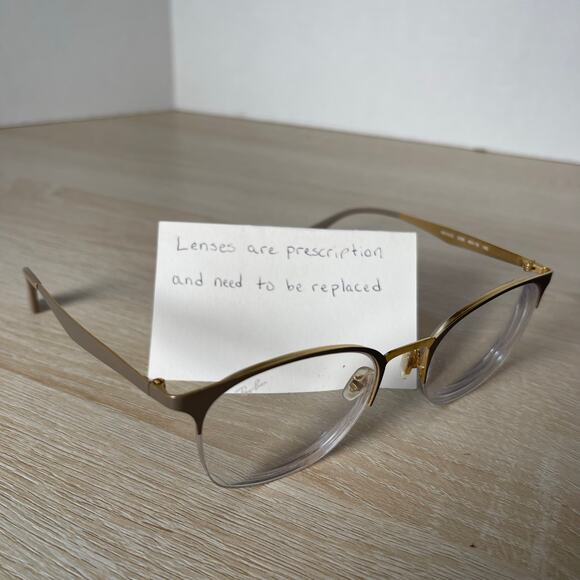 Lenses are prescription
and need to be replaced
Ray-Ban